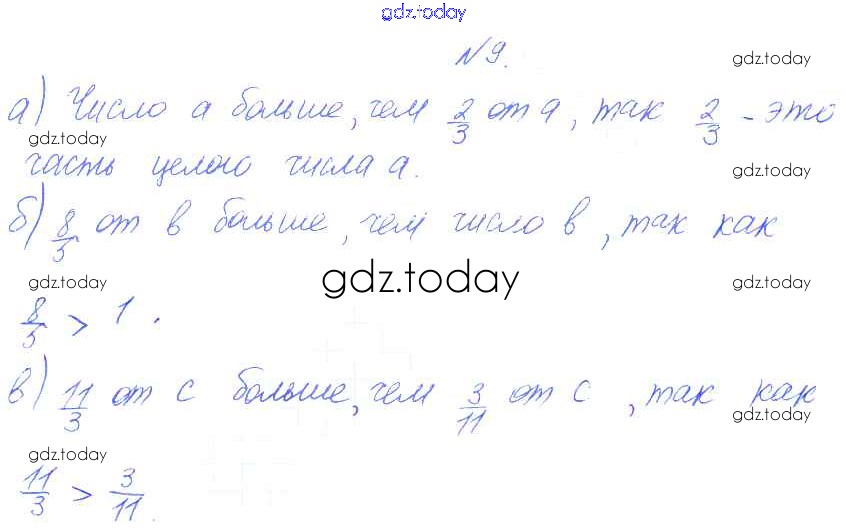 gdz.today
№9.
gdz.today
а) Число а больше, чем 2/3 от а, так 2/3 - это
gdz.today
часть целого числа а.
gdz.today
б) 8/5 от в больше, чем число в, так как
gdz.today
gdz.today
gdz.today
8/5 > 1.
в) 11/3 от с больше, чем 3/11 от с, так как
gdz.today
gdz.today
11/3 > 3/11.